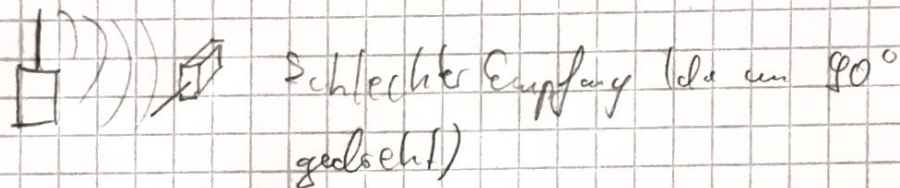 Schlechter Empfang (da um 90°
gedreht)